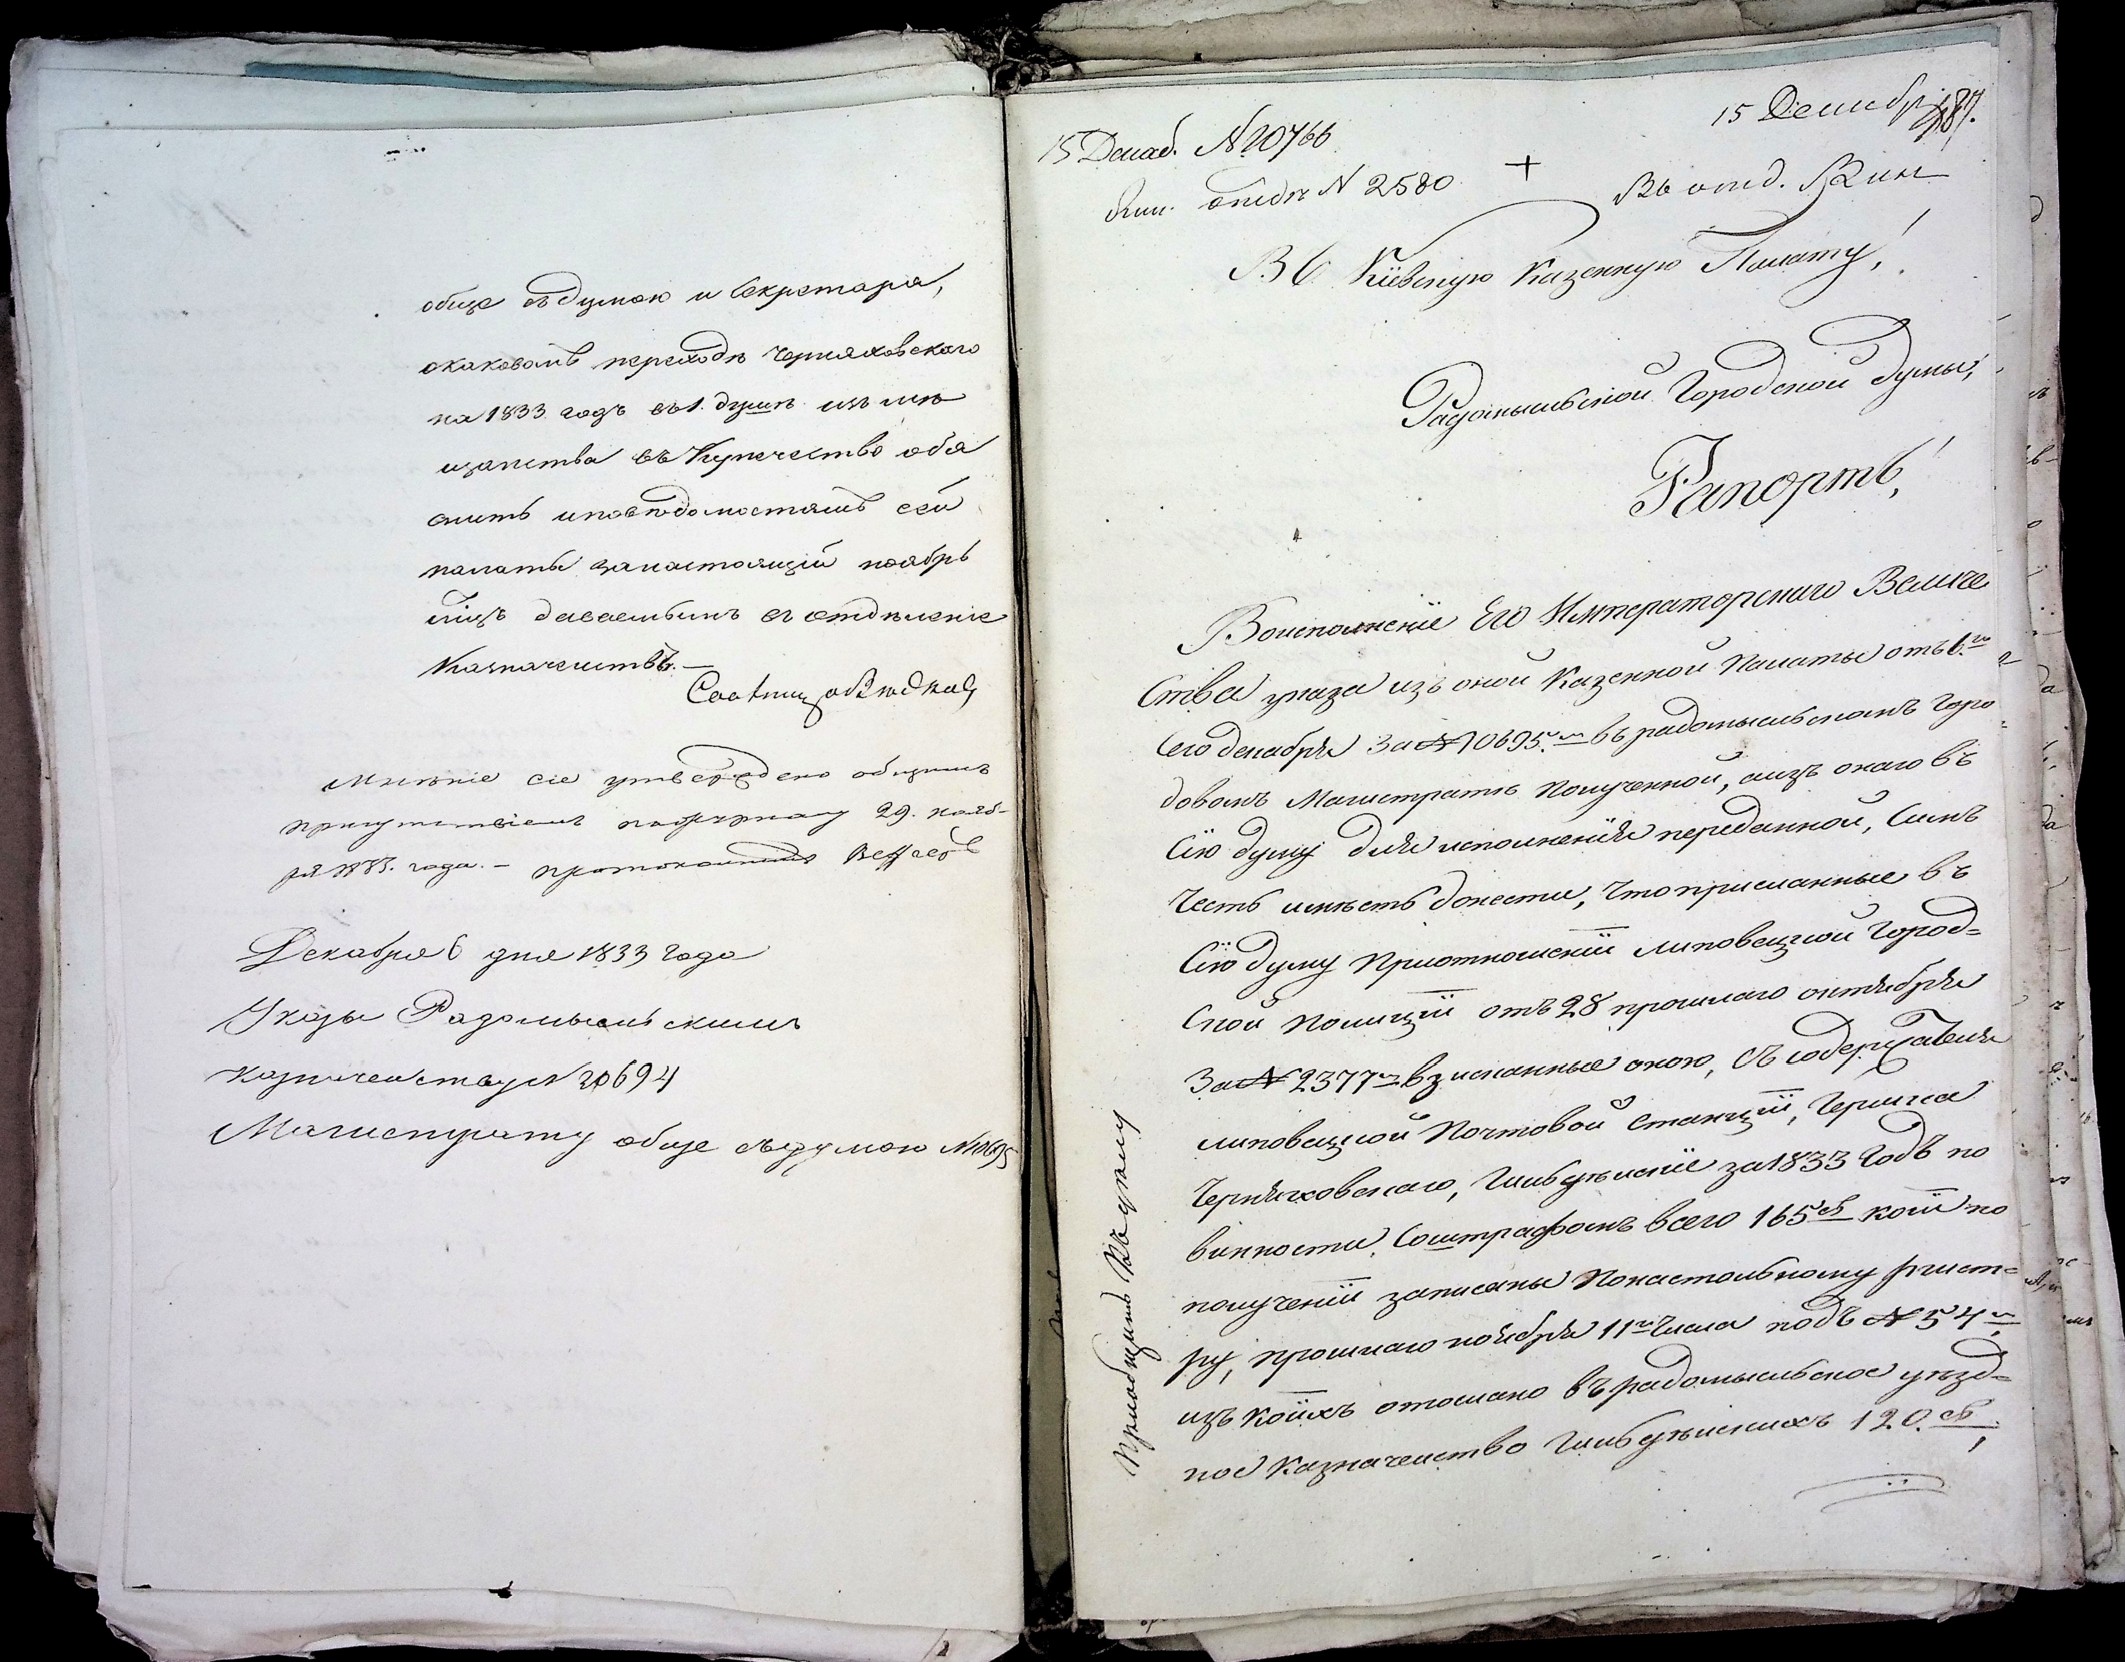 обще съ думою и Секретаря,
окаковомъ переходѣ Черняховскаго
на 1833 годъ въ 1. душѣ изъ мѣ
щанства въ Купечество объя
снить и по вѣдомостямъ сей
палаты за настоящій ноябрь
мцъ даваемымъ въ отдѣленіе
Казначействъ. —
Мнѣніе сіе утверждено общимъ
присутствіемъ по журналу 29. нояб-
ря 1833. года. — протоколистъ
Декабря 6 дня 1833 года
Указы Радомысльскимъ
казначейству N 20694
Магистрату обще съ думою N 10695
15 Декаб. № 20766
N 2580
15 Декабря
487.
Въ отд. Казн
Въ Кіевскую Казенную Палату!
Радомысльской Городской думы,
Рапортъ,
Воисполненіе Его Императорскаго Величе
ства указа изъ оной Казенной Палаты отъ 6.го
сего декабря За № 10695.мъ въ радомысльскомъ горо
довомъ Магистратѣ полученной, аизъ онаго въ
Сію думу для исполненія переданной, Симъ
Честь имѣетъ донести, Что присланные въ
Сію думу Приотношеніи липовецкой Город=
ской Полиціи отъ 28 прошлаго октября
За № 2377мъ взысканные оною, Съ содержателя
липовецкой Почтовой станціи, Гершка
Черняховскаго, Гильдѣйскіе за 1833 Годъ по
винности, Соштрафомъ всего 165 р. коіи по
полученіи записаны Понастольному регист=
ру, прошлаго ноября 11го Числа подъ № 54м,
изъ коіихъ отослано въ радомысльское уѣзд=
ное Казначейство Гильдѣйскихъ 120. р.,
Приобщить Къ дѣлу